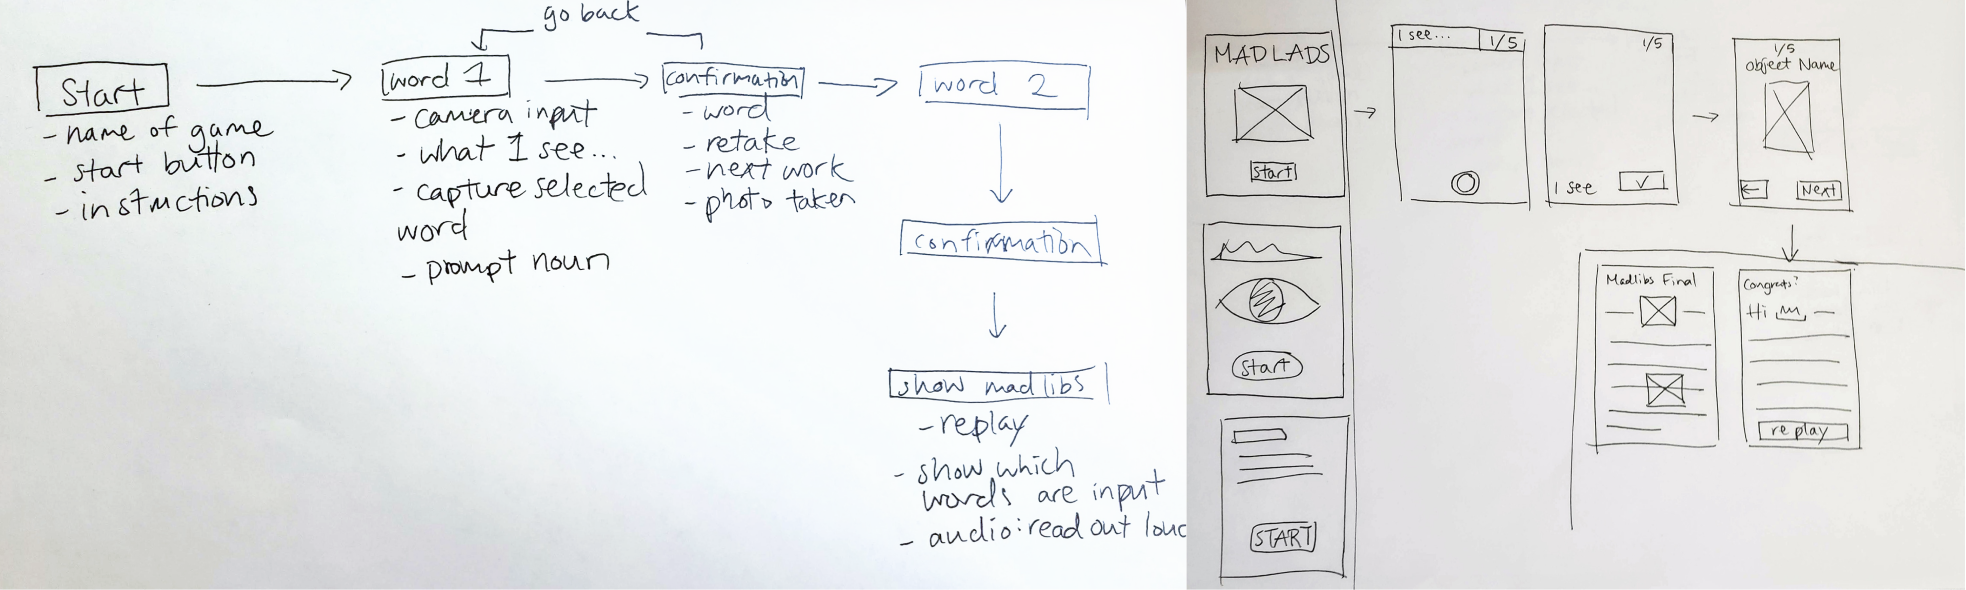 go back
Start
- name of game
- start button
- instructions
word 1
- camera input
- what I see...
- capture selected
word
- prompt noun
confirmation
- word
- retake
- next work
- photo taken
word 2
confirmation
show madlibs
- replay
- show which
words are input
- audio: read out louc
MADLADS
start
start
START
I see... 1/5
1/5
I see
1/5
object Name
Next
Madlibs Final
Congrats!
Hi
replay